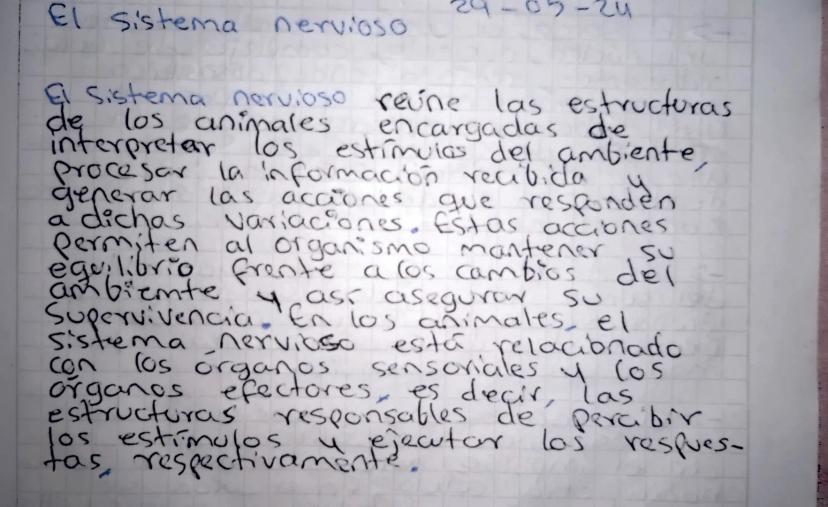 29-05-24
El sistema nervioso
El sistema nervioso reúne las estructuras
de los animales encargadas de
interpretar los estímulos del ambiente,
procesar la información recibida y
generar las acciones que responden
a dichas variaciones. Estas acciones
permiten al organismo mantener su
equilibrio frente a los cambios del
ambiemte y así asegurar su
supervivencia. En los animales, el
sistema nervioso está relacionado
con los órganos sensoriales y los
órganos efectores, es decir, las
estructuras responsables de percibir
los estímulos y ejecutar las respues-
tas, respectivamente.